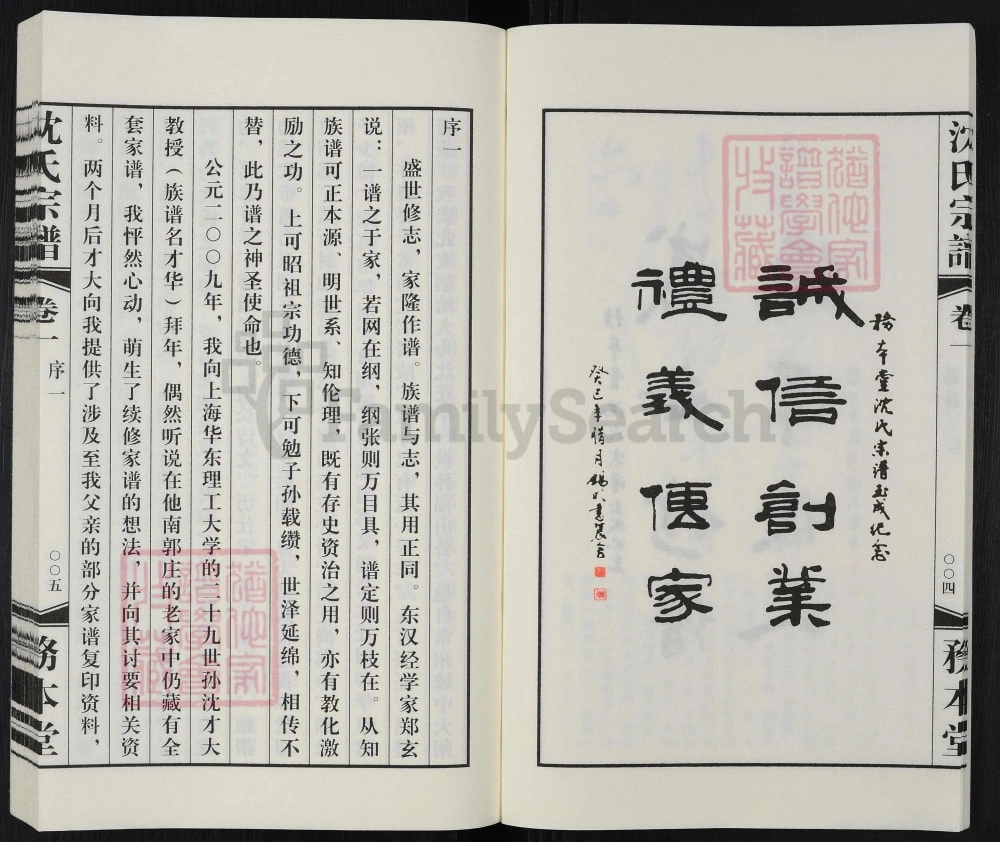 沈氏宗譜
卷一
〇〇四
務本堂
務本堂沈氏宗谱
誠信創業
禮義傳家
癸巳年腊月
猶他家
譜學會
收藏
FamilySearch
序一
盛世修志，家隆作谱。族谱与志，其用正同。东汉经学家郑玄
说：一谱之于家，若网在纲，纲张则万目具，谱定则万枝在。从知
族谱可正本源、明世系、知伦理，既有存史资治之用，亦有教化激
励之功。上可昭祖宗功德，下可勉子孙载缵，世泽延绵，相传不
替，此乃谱之神圣使命也。
公元二〇〇九年，我向上海华东理工大学的二十九世孙沈才大
教授（族谱名才华）拜年，偶然听说在他南郭庄的老家中仍藏有全
套家谱，我怦然心动，萌生了续修家谱的想法，并向其讨要相关资
料。两个月后才大向我提供了涉及至我父亲的部分家谱复印资料，
沈氏宗譜
卷一
序一
〇〇五
務本堂
猶他家
譜學會
收藏